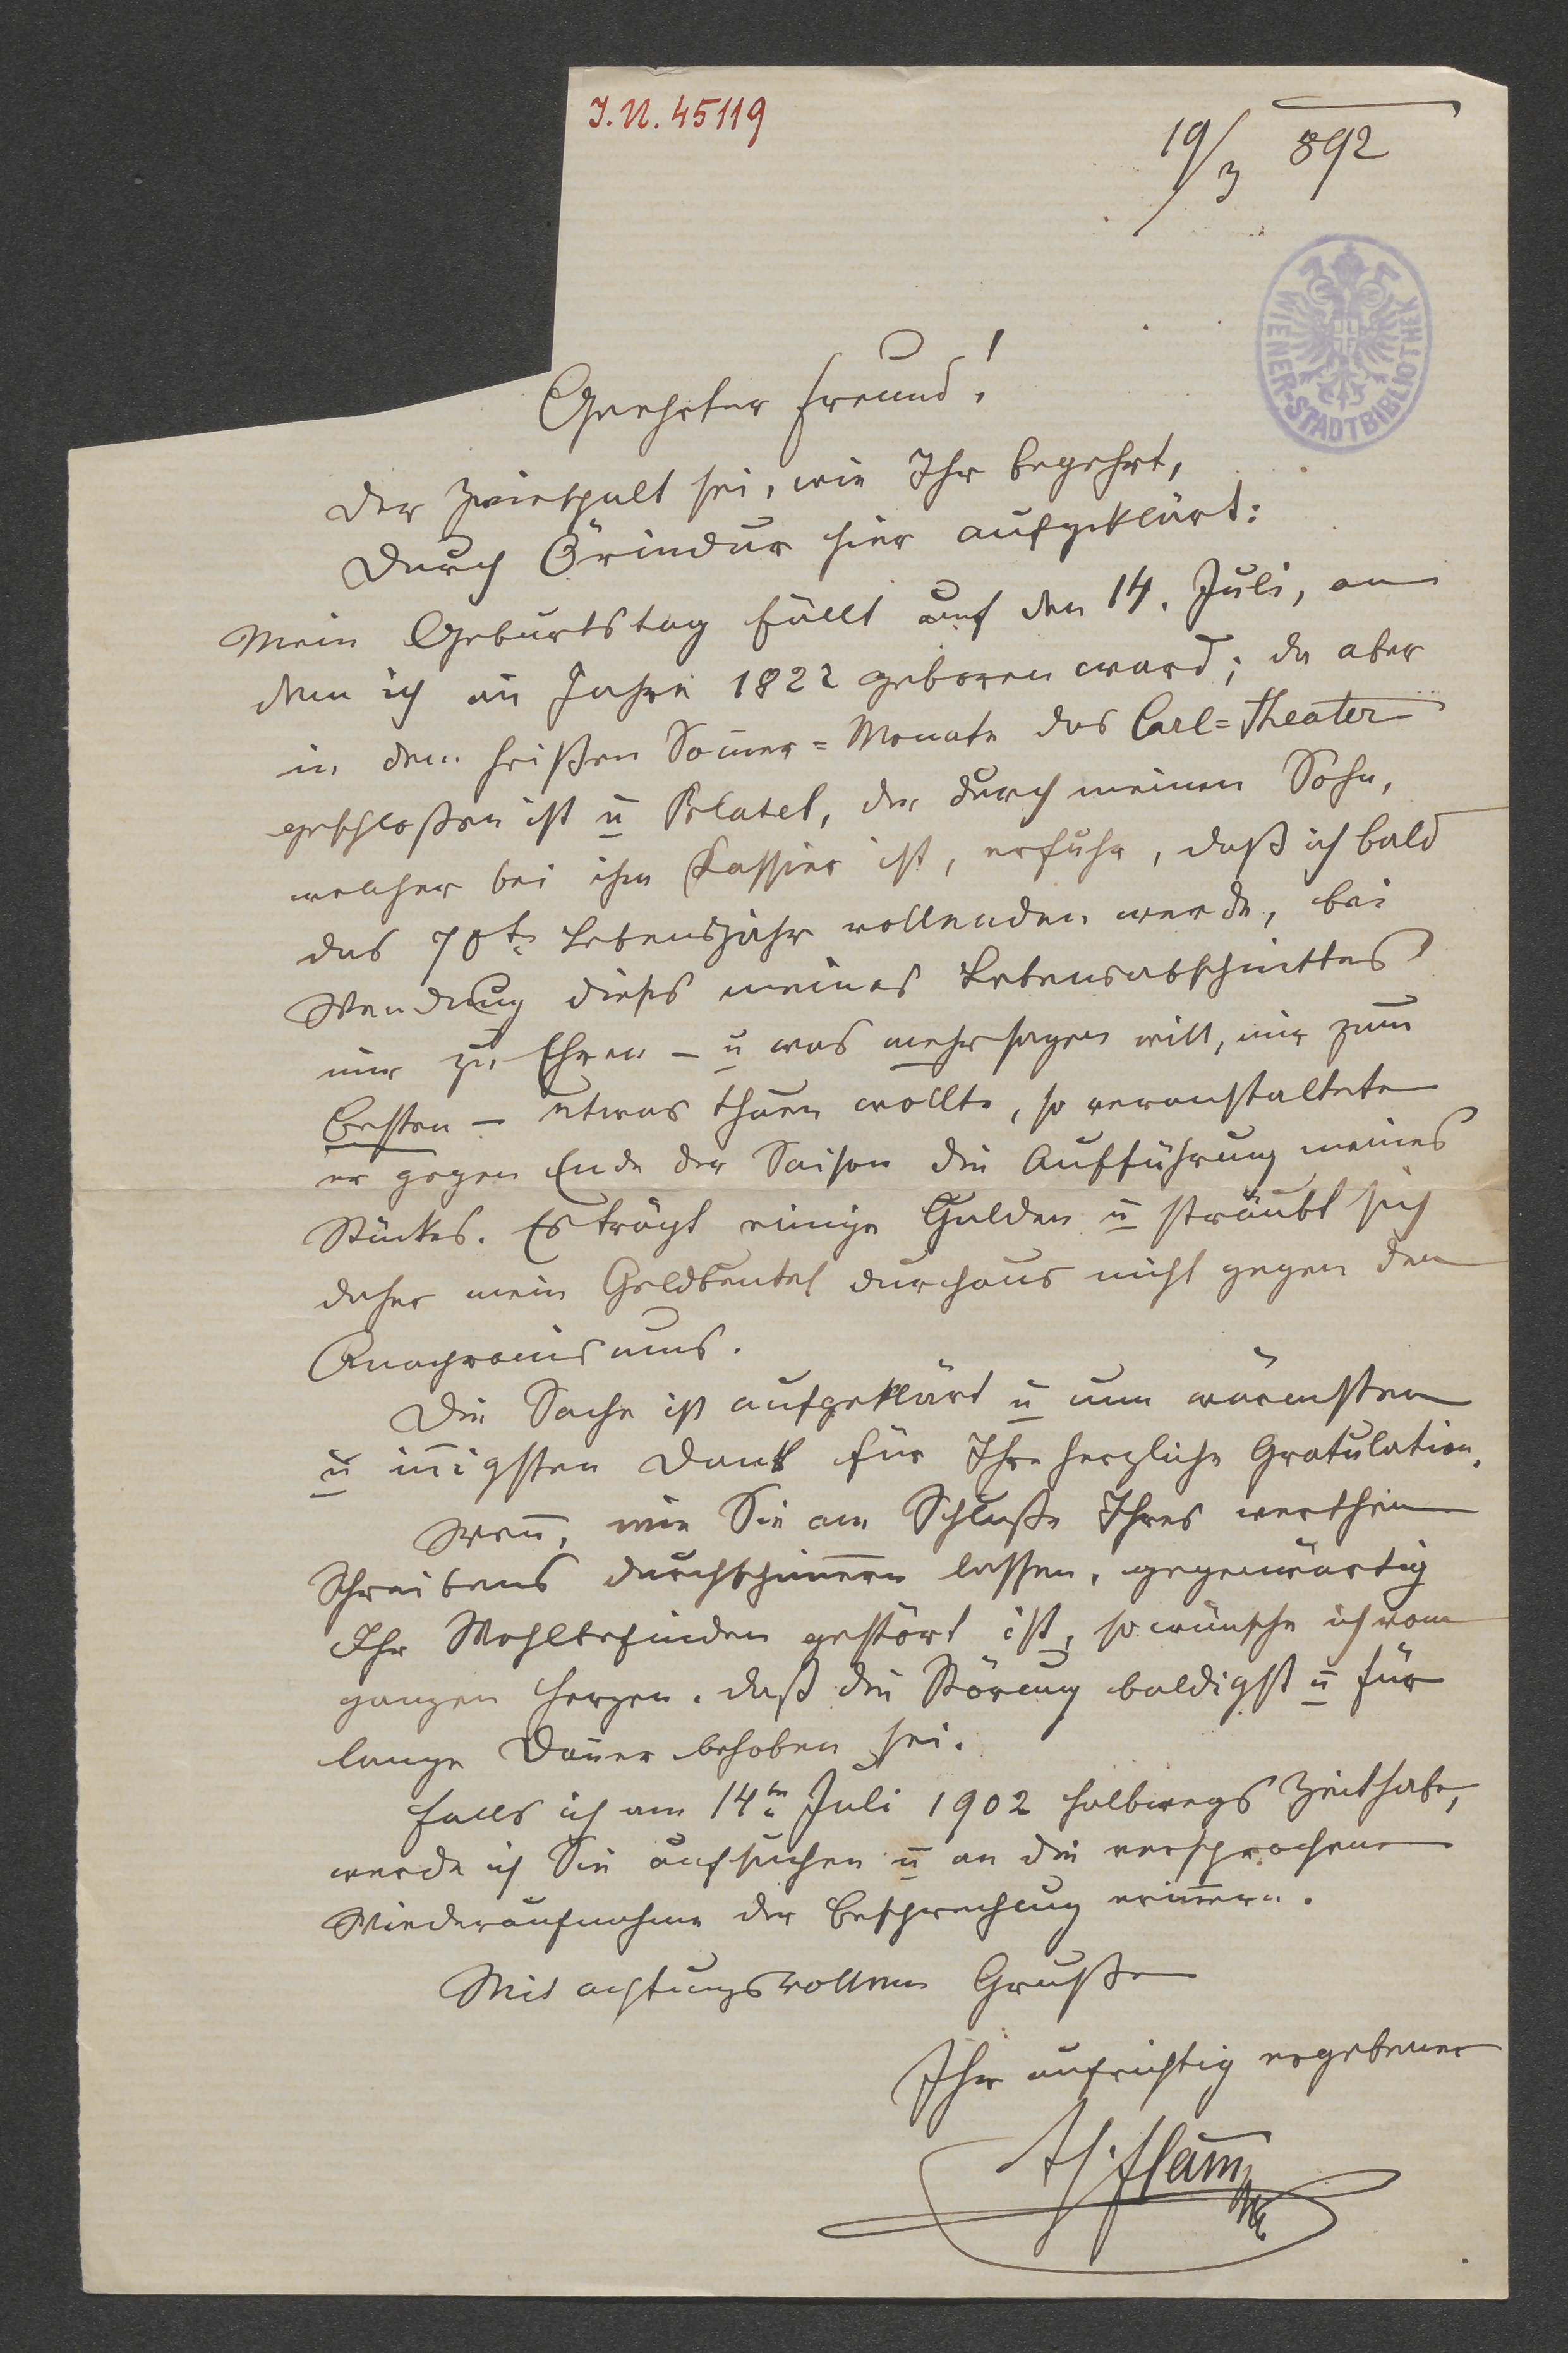 I.N. 45119
19/3 892
WIENER-STADTBIBLIOTHEK
Geehrter Freund!
Der Zwiespalt sei, wie Ihr begehrt,
Durch Örindur hier aufgeklärt:
Mein Geburtstag fällt auf den 14. Juli, an
dem ich im Jahre 1822 geboren ward; da aber
in dem heißen Som̅er=Monate das Carl=Theater
geschloßen ist u̅ Blasel, der durch meinen Sohn,
welcher bei ihm Kassier ist, erfuhr, daß ich bald
das 70te Lebensjahr vollenden werde, bei
Wendung dieses meines Lebensabschnittes
mir zu Ehren – u̅ was mehr sagen will, mir zum
Besten – etwas thuen wollte, so veranstaltete
er gegen Ende der Saison die Aufführung meines
Stückes. Es trägt einige Gulden u̅ sträubt sich
daher mein Geldbeutel durchaus nicht gegen den
Anachronismus.
Die Sache ist aufgeklärt u̅ nun wärmsten
u̅ in̅igsten Dank für Ihre herzliche Gratulation.
Wen̅, wie Sie am Schluße Ihres werthen
Schreibens durchschim̅ern lassen, gegenwärtig
Ihr Wohlbefinden gestört ist, so wünsche ich vom
ganzen Herzen, daß die Störung baldigst u̅ für
lange Dauer behoben sei.
Falls ich am 14ten Juli 1902 halbwegs Zeit habe,
werde ich Sie aufsuchen u̅ an die versprochene
Wiederaufnahme der Besprechung erin̅ern.
Mit achtungsvollem Gruße
Ihr aufrichtig ergebener
Flam̅